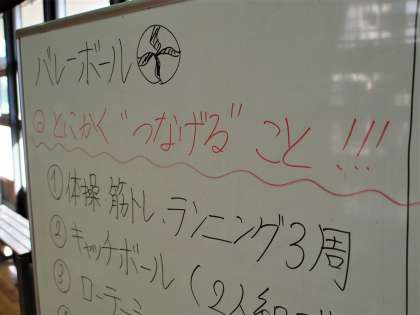 バレーボール
◎とにかく"つなげる"こと!!!
①体操、筋トレ、ランニング3周
②キャッチボール(2人組で
③ローテーシ